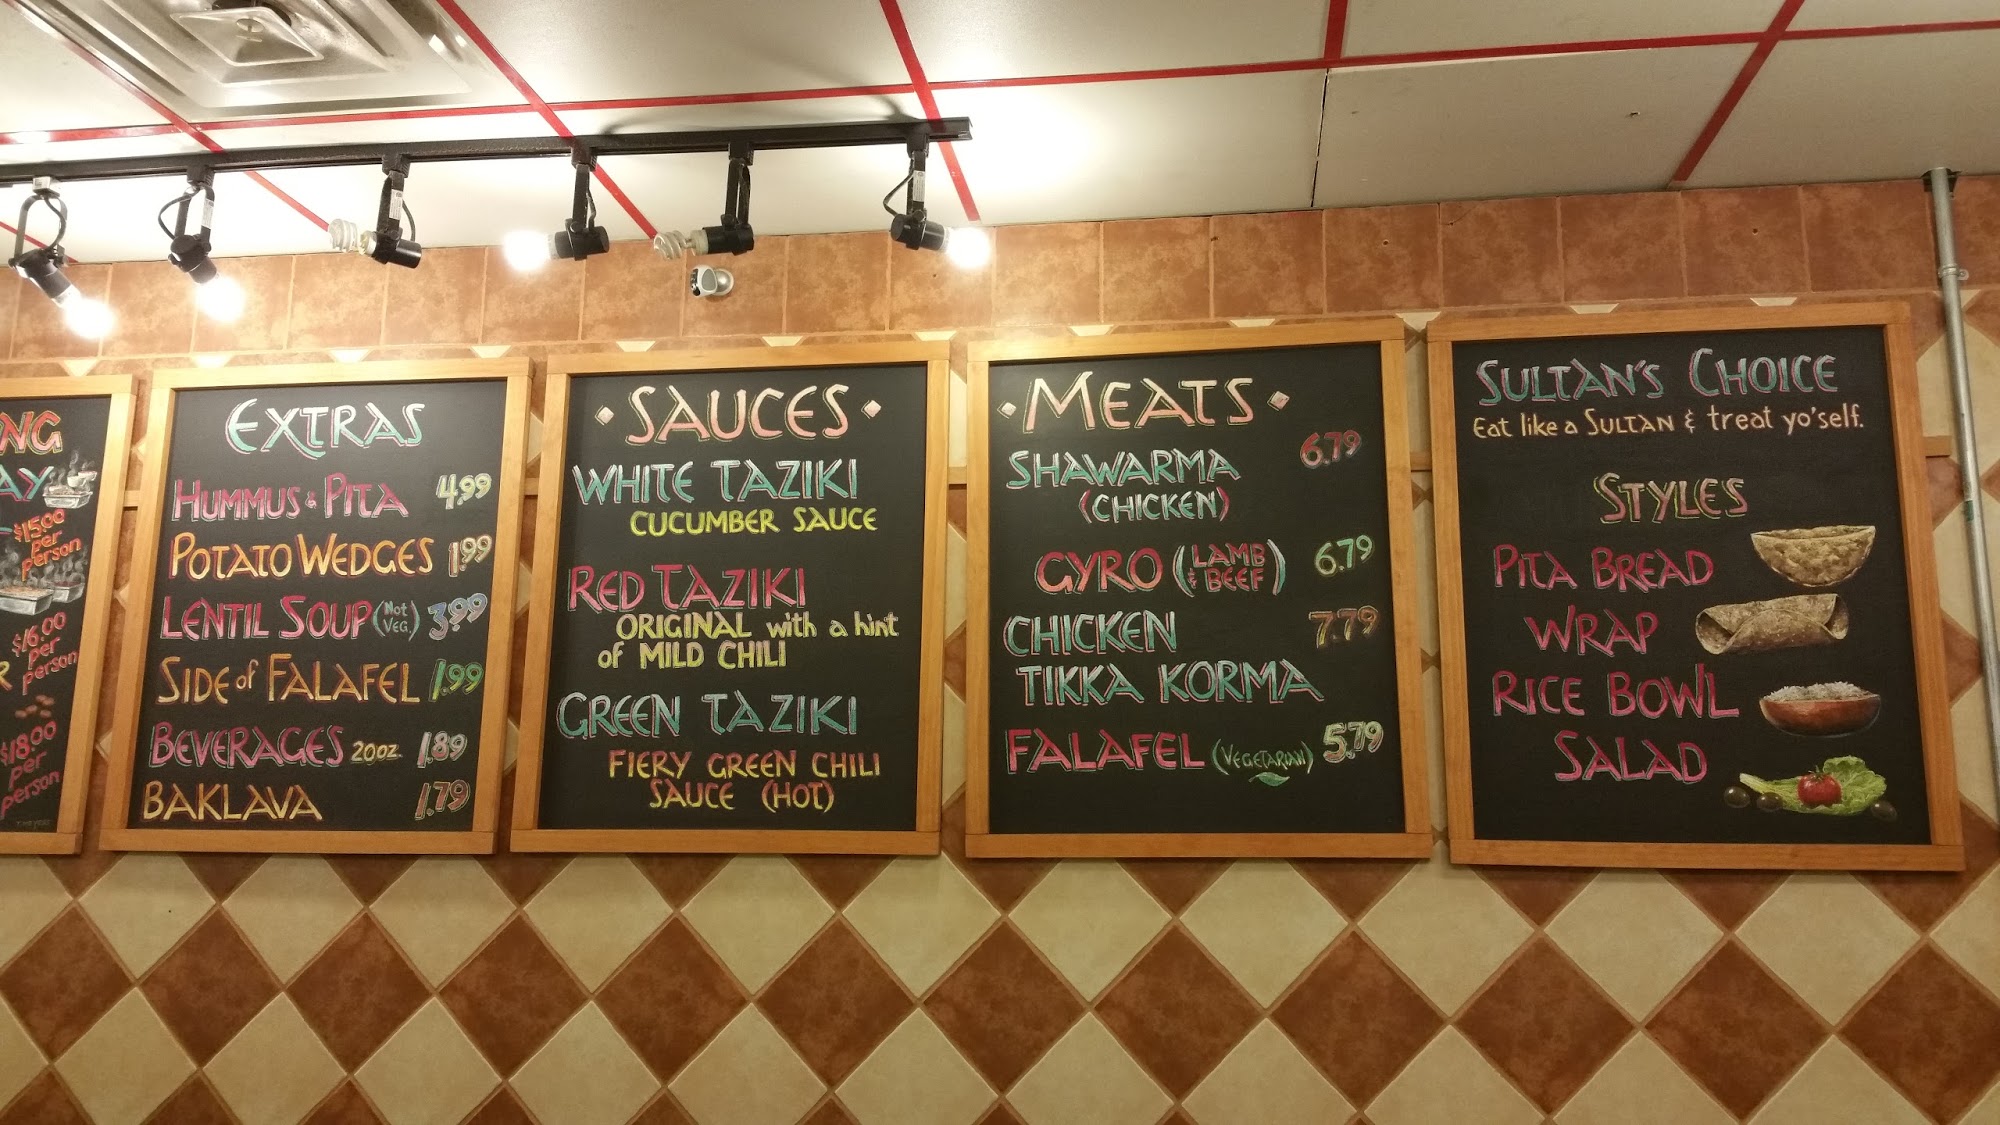 NG
AY
$15.00
per
person
$16.00
per
person
R
$18.00
per
person
EXTRAS
HUMMUS & PITA 4.99
POTATO WEDGES 1.99
LENTIL SOUP (Not Veg.) 3.99
SIDE of FALAFEL 1.99
BEVERAGES 20oz. 1.89
BAKLAVA 1.79
SAUCES
WHITE TAZIKI
CUCUMBER SAUCE
RED TAZIKI
ORIGINAL with a hint
of MILD CHILI
GREEN TAZIKI
FIERY GREEN CHILI
SAUCE (HOT)
MEATS
SHAWARMA 6.79
(CHICKEN)
GYRO (LAMB & BEEF) 6.79
CHICKEN 7.79
TIKKA KORMA
FALAFEL (VEGETARIAN) 5.79
SULTAN'S CHOICE
Eat like a SULTAN & treat yo'self.
STYLES
PITA BREAD
WRAP
RICE BOWL
SALAD